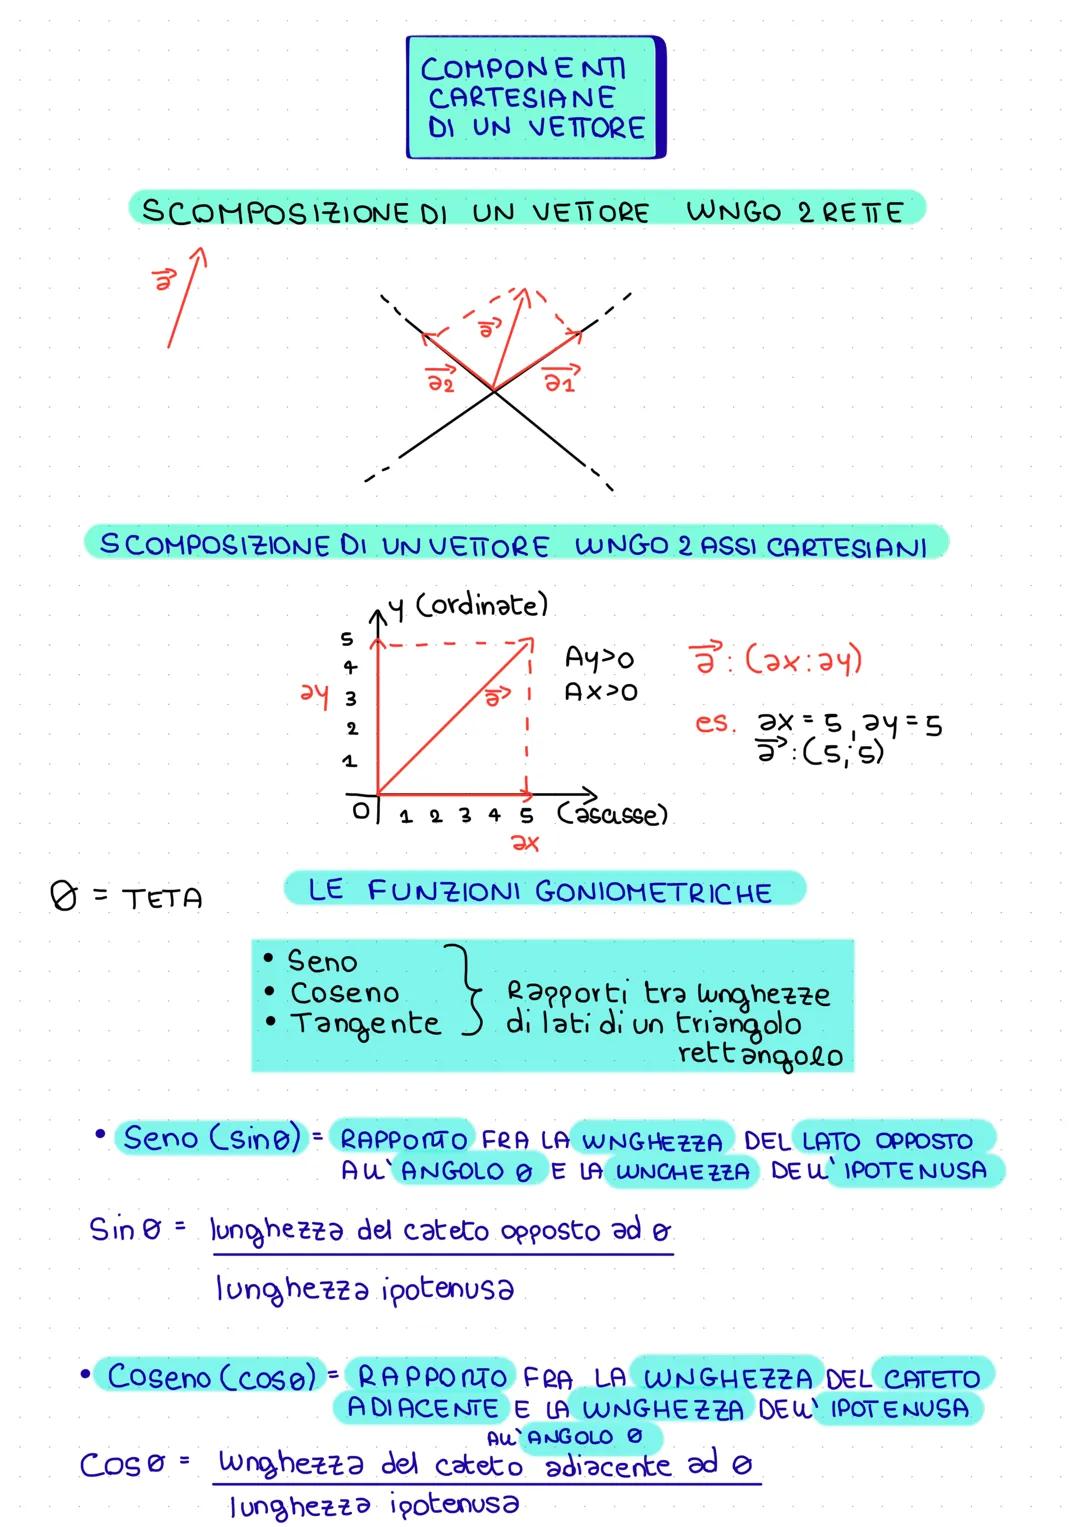 COMPONENTI
CARTESIANE
DI UN VETTORE
SCOMPOSIZIONE DI UN VETTORE LUNGO 2 RETTE
a
a
a2
a1
SCOMPOSIZIONE DI UN VETTORE LUNGO 2 ASSI CARTESIANI
y (ordinate)
5
4
ay 3
2
1
a
Ay>0
Ax>0
a: (ax:ay)
es. ax = 5, ay = 5
a: (5;5)
0 1 2 3 4 5 (ascisse)
ax
θ = TETA
LE FUNZIONI GONIOMETRICHE
• Seno
• Coseno
• Tangente
Rapporti tra lunghezze
di lati di un triangolo
rettangolo
• Seno (sinθ) = RAPPORTO FRA LA LUNGHEZZA DEL LATO OPPOSTO
ALL'ANGOLO θ E LA LUNGHEZZA DELL'IPOTENUSA
Sin θ = lunghezza del cateto opposto ad θ
lunghezza ipotenusa
• Coseno (cosθ) = RAPPORTO FRA LA LUNGHEZZA DEL CATETO
ADIACENTE E LA LUNGHEZZA DELL'IPOTENUSA
ALL'ANGOLO θ
Cos θ = lunghezza del cateto adiacente ad θ
lunghezza ipotenusa